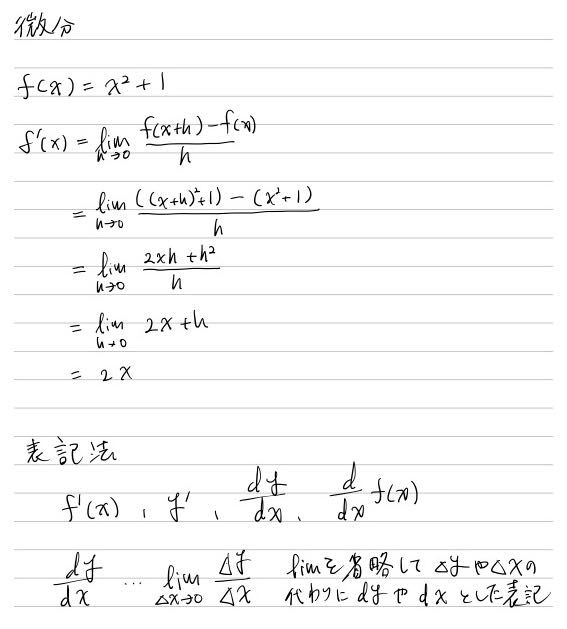 微分
f(x) = x² + 1
f'(x) = lim h→0 (f(x+h) - f(x)) / h
= lim h→0 (((x+h)²+1) - (x²+1)) / h
= lim h→0 (2xh + h²) / h
= lim h→0 2x + h
= 2x
表記法
f'(x), y', dy/dx, d/dx f(x)
dy/dx … lim Δx→0 Δy/Δx limを省略して Δyや△xの
代わりに dyや dx とした表記